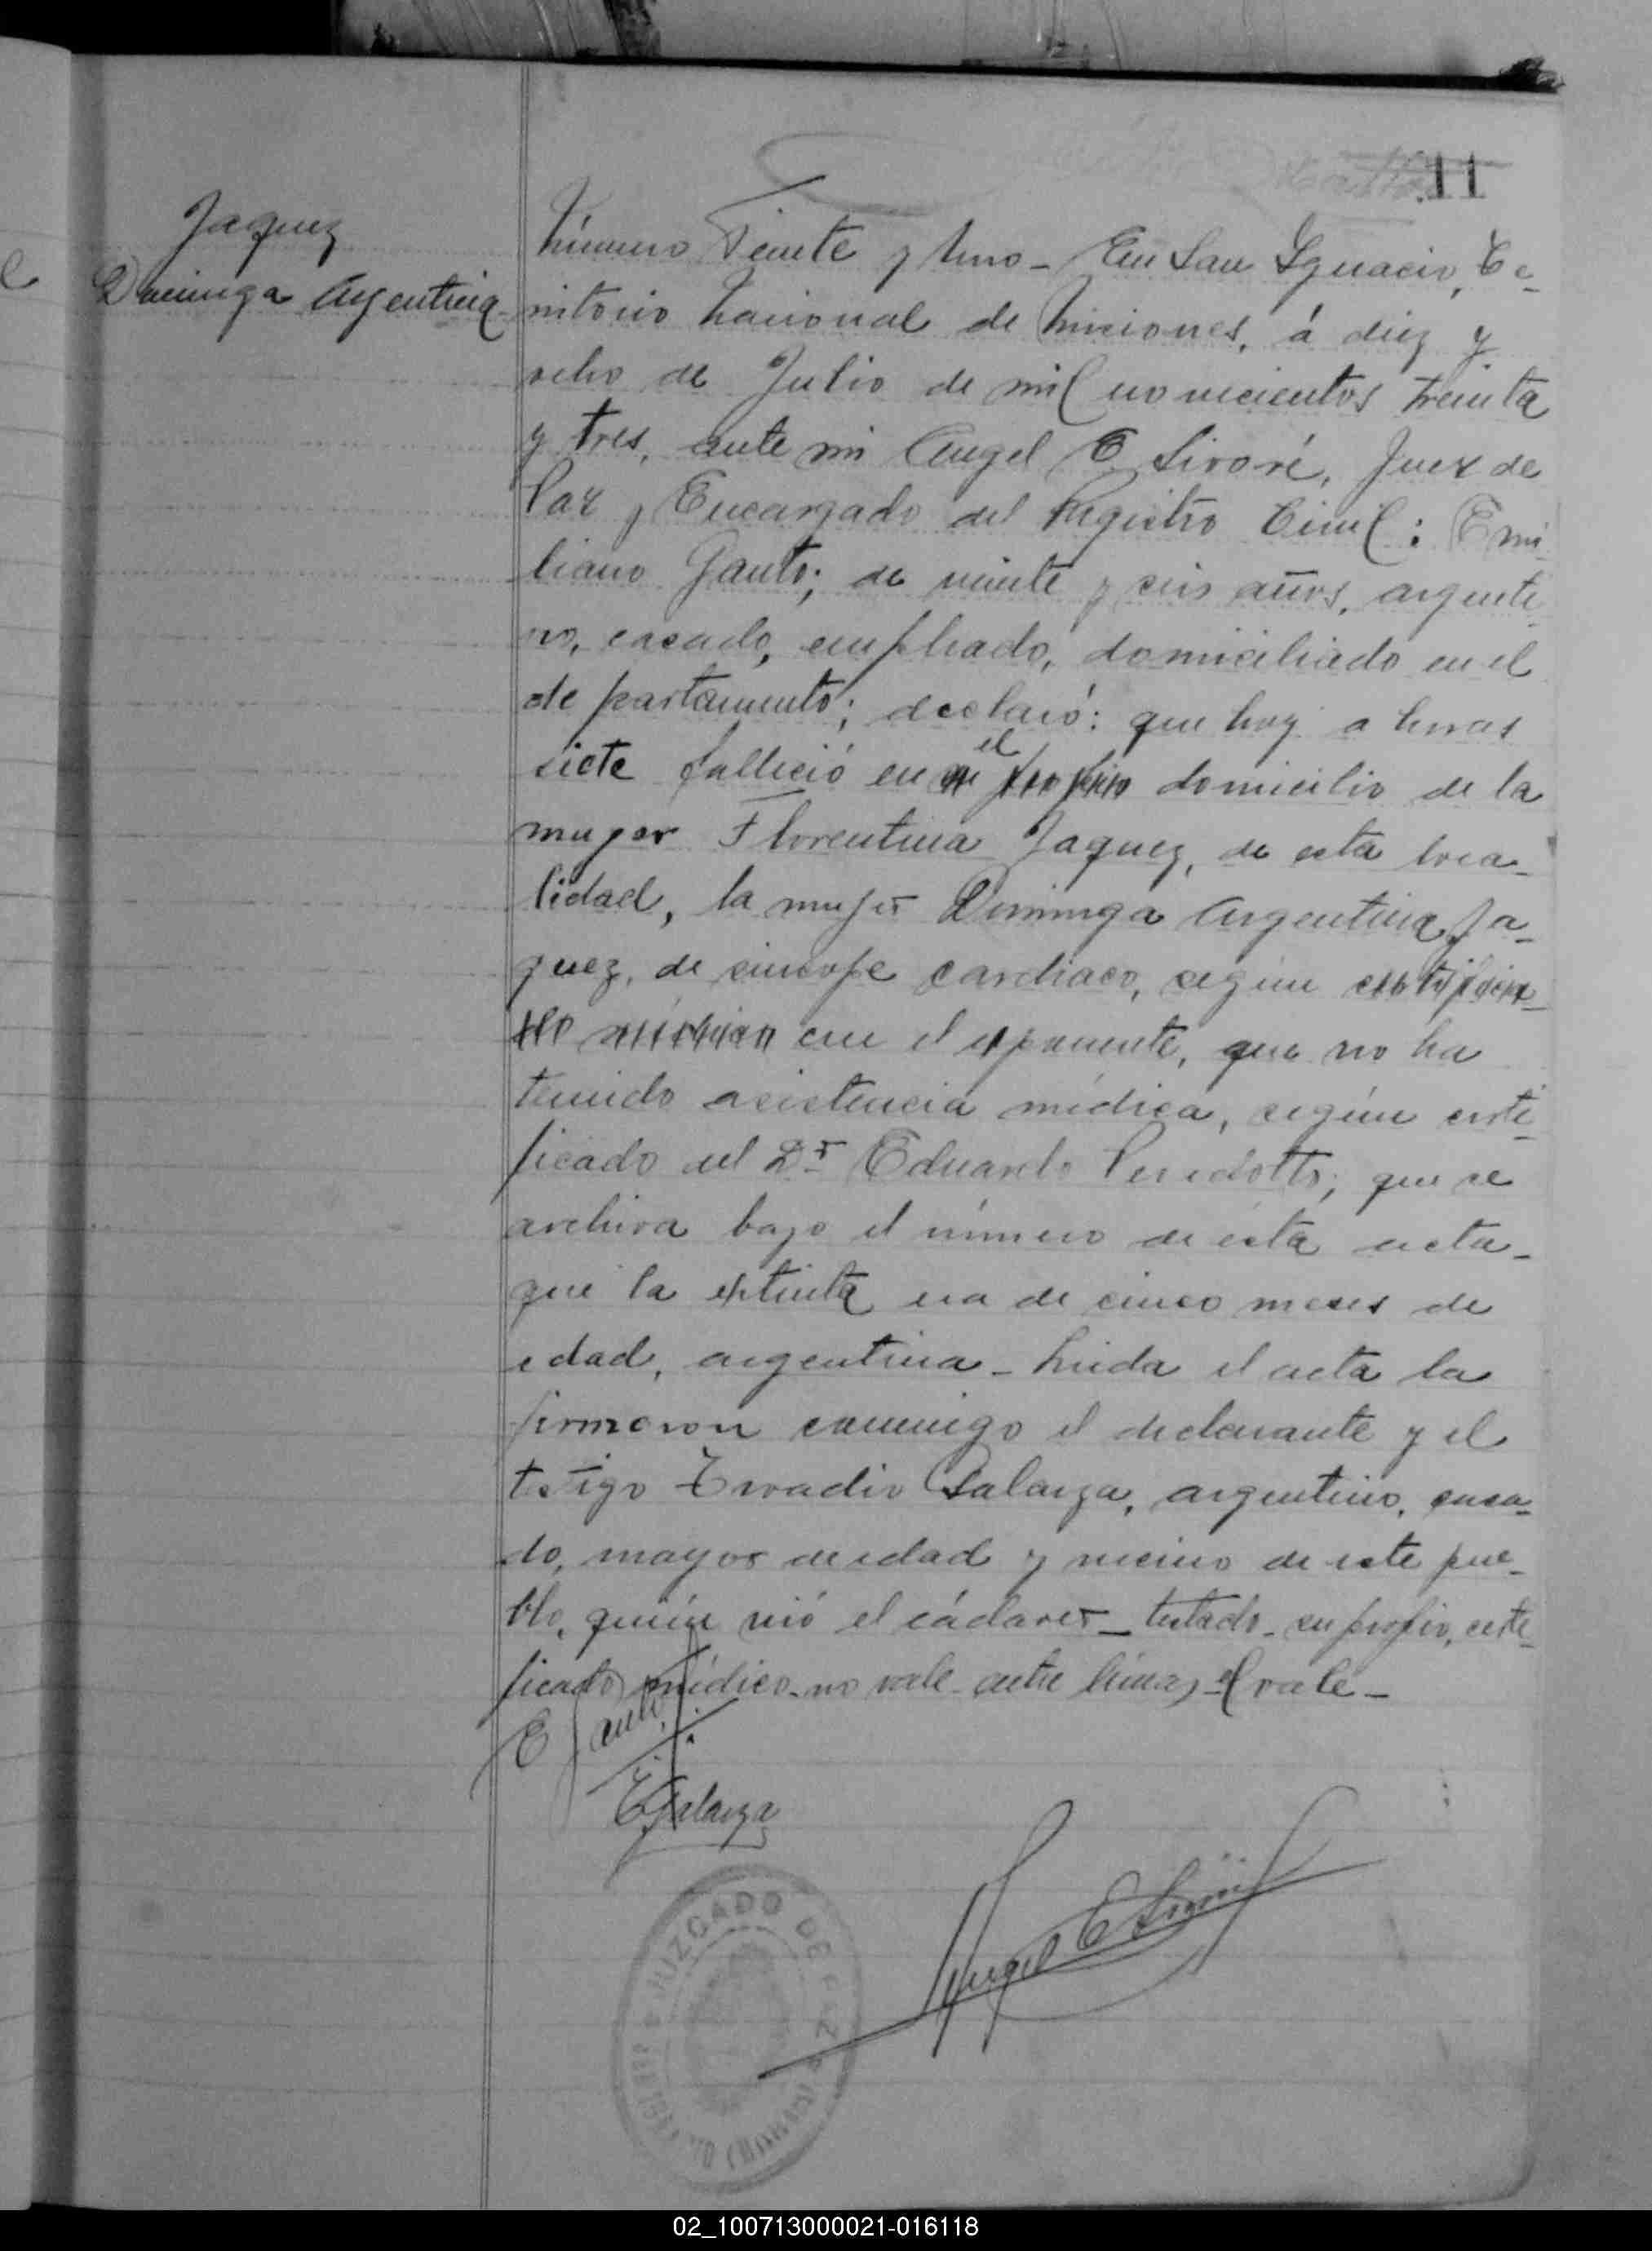 11
Jaquez
Dominga Argentina
Número Veinte y Uno - En San Ygnacio, Te-
rritorio Nacional de Misiones, á diez y
ocho de Julio de mil novecientos treinta
y tres, ante mi Angel E. Siroré, Juez de
Paz y Encargado del Registro Civil: Emi-
liano Gauto; de veinte y seis años, argenti-
no, casado, empleado, domiciliado en el
departamento; declaró: que hoy a horas
el
siete falleció en su propio domicilio de la
mujer Florentina Jaquez, de esta loca-
lidad, la mujer Dominga Argentina Ja-
quez, de sincope cardiaco, según certifica-
do médico cree el exponente, que no ha
tenido asistencia médica, según certi-
ficado del Dr Eduardo que se
archiva bajo el número de esta acta-
que la extinta era de cinco meses de
edad, argentina - Leida el acta la
firmaron conmigo el declarante y el
testigo Evadio Galarza, argentino, casa-
do, mayor de edad y vecino de este pue-
blo, quién vió el cádaver - testado - su propio, certi-
ficado médico - no vale - entre lineas - el vale -
E Gauto
E Galarza
Angel E Siroré
JUZGADO DE PAZ
02_100713000021-016118